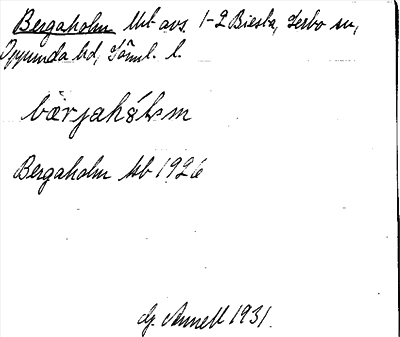 Bergaholm lht avs. 1-2 Biesta, Lerbo sn,
Oppunda hd, Sömnl. l.
bærjahólm
Bergaholm kb 1926
G. Annell 1931.